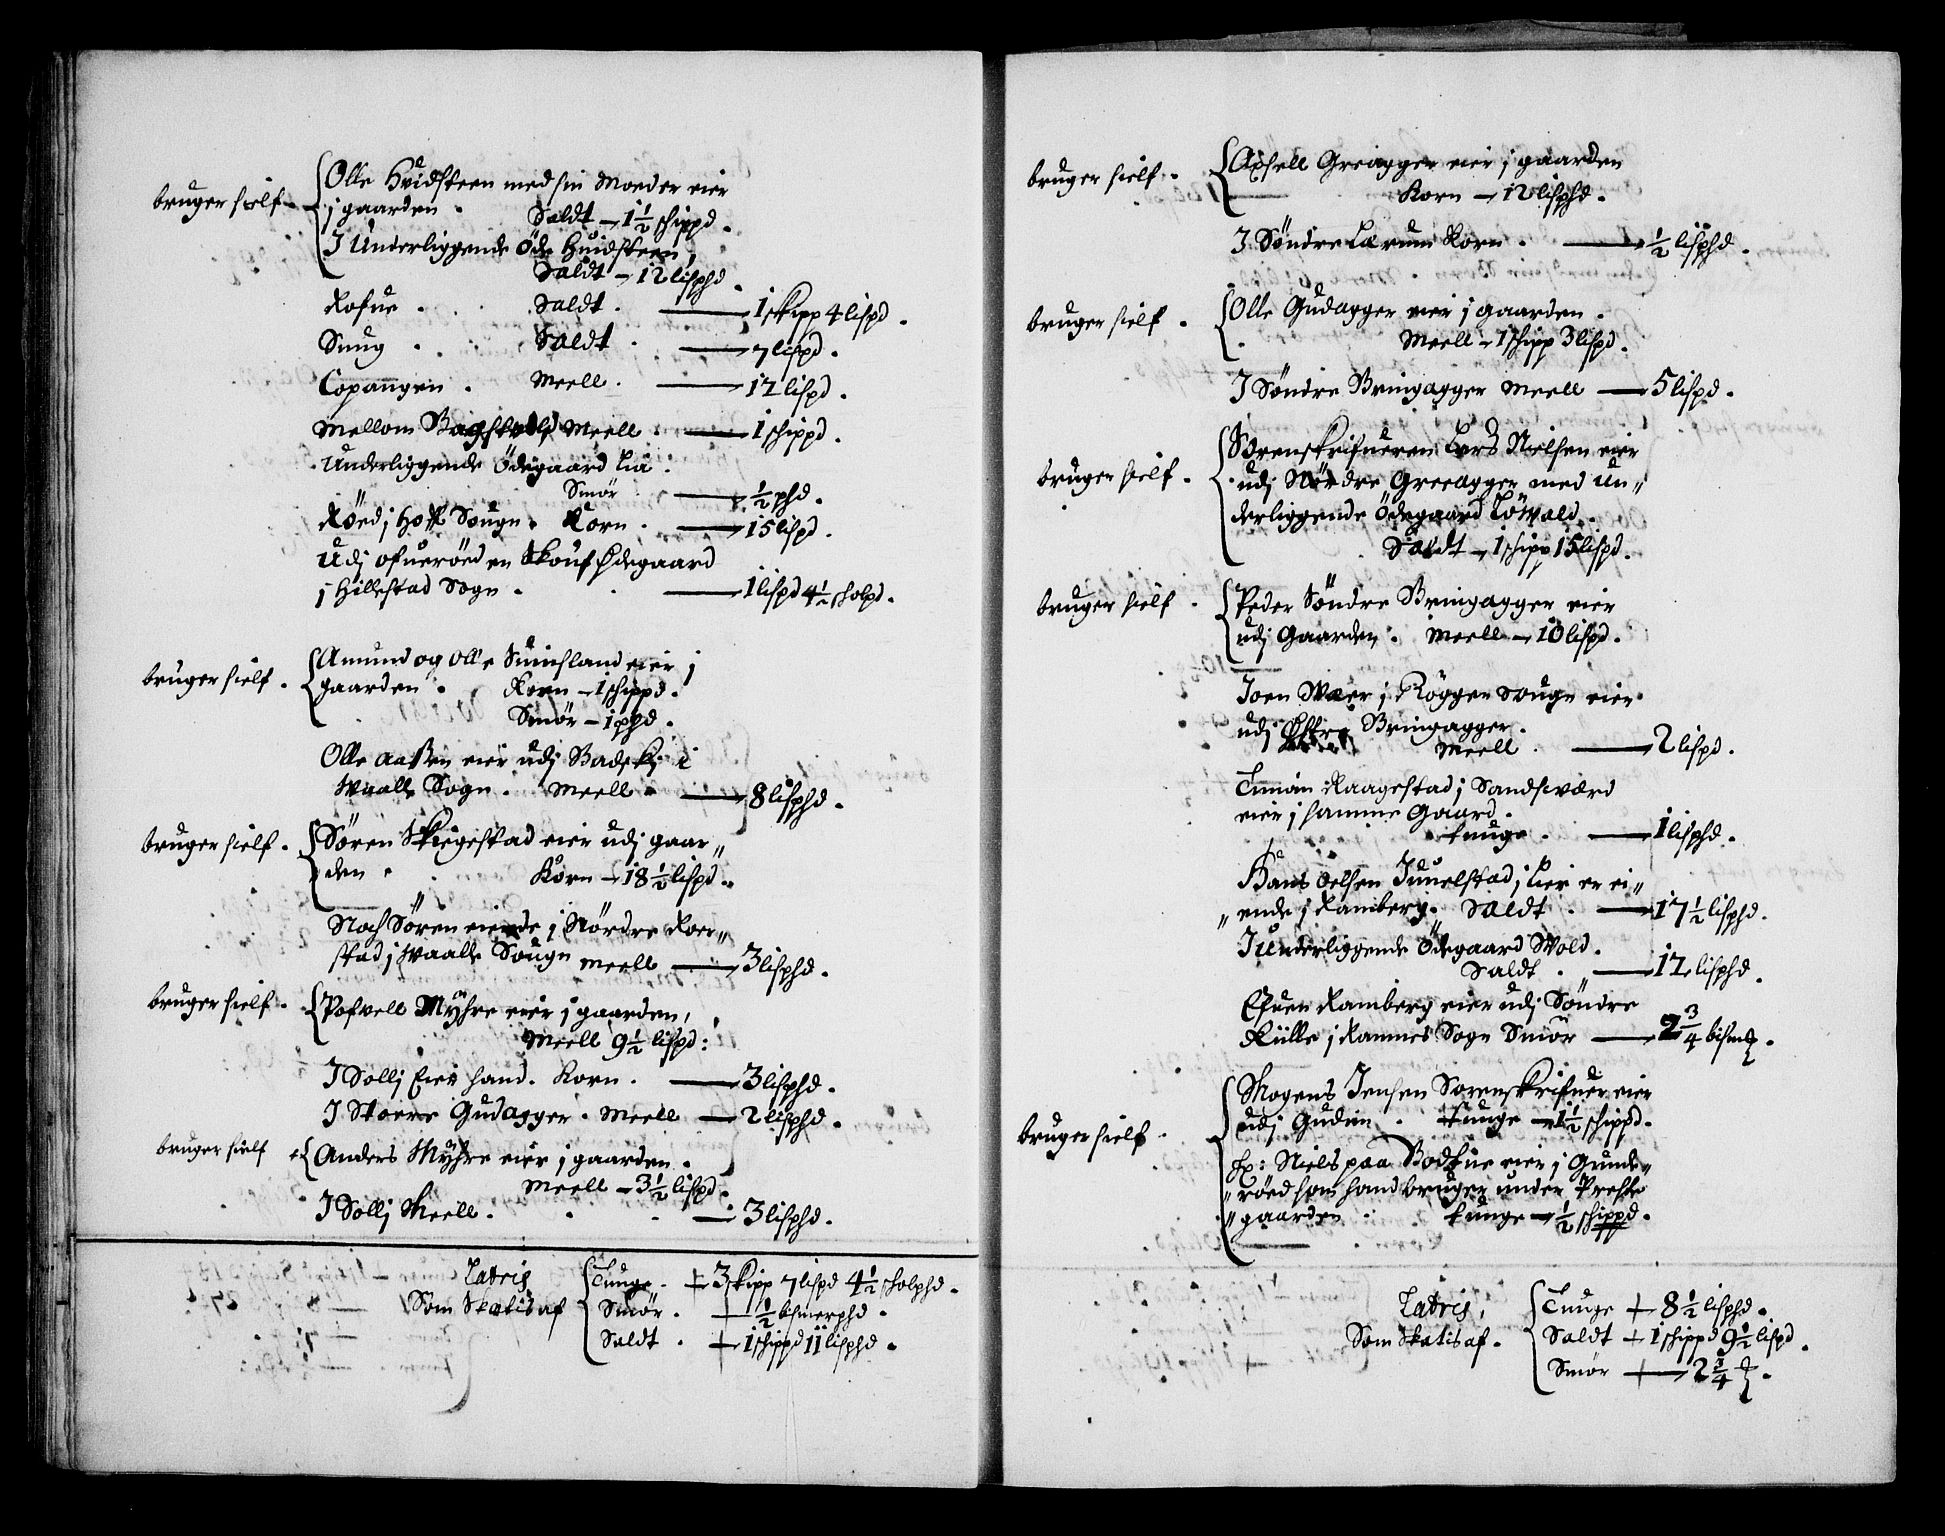 bruger sielf — Olle Hvidsteen med sin Moeder eier
j gaarden . Saldt — 1½ schippd .
J Underliggende Öde Huidsteen,
Saldt — 12 lisphd .
Rofue . Saldt . — 1 skipp 4 lispd .
Snug . Saldt . — 7 lispd .
Copangen . Meell . — 12 lispd .
Mellom Meell . — 1 schippd .
Underliggende Ödegaard Lia .
Smör — ½ phd .
Röed j Hoff Sougn . Korn . — 15 lispd .
Udj ofuerröed en Skouf Ödegaard
j Hillestad Sogn . — 1 lispd 4½ skolpd .
bruger sielf . Amund og Olle Suinsland eier j
gaarden . Korn — 1 schippd .
Smör — 1 phd .
Olle Aassen eier udj Badski i
Waalle Sogn . Meell . — 8 lisphd .
bruger sielf . Sören Skiegestad eier udj gaar„
den . Korn — 18½ lispd .
Noch Sören eiende j Nördre Roer„
stad j Waalle Sougn Meell — 3 lisphd .
bruger sielf . Pofvell Myhre eier j gaarden,
Meell 9½ lispd :
J Sollj Eier hand . Korn . — 3 lisphd .
J Stoere Gudagger . Meell — 2 lisphd .
bruger sielf Anders Myhre eier j gaarden .
Meell — 3½ lispd .
J Sollj Meell . — 3 lisphd .
Latris
Som Skatis af
Tunge . — 3 skipp 7 lispd 4½ skolphd .
Smör . — ½ bismerphd .
Saldt . — 1 schippd 11 lisphd .
bruger sielf . Axsell Greagger eier j gaarden
Korn — 12 lisphd .
J Söndre Lærum Korn . — ½ lisphd .
bruger sielf . Olle Gudagger eier j gaarden .
Meell — 1 schipp 3 lispd .
J Söndre Bringagger Meell — 5 lispd .
bruger sielf . Sorenskrifueren Lars Nielsen eier
udj Nördre Greeagger med un„
derliggende Ödegaard Löwald .
Saldt — 1 schipp 15 lispd .
bruger sielf . Peder Söndre Bringagger eier
udj Gaarden . Meell — 10 lispd .
Joen Wær j Rögger Sougn eier
udj Bringagger .
Meell . — 2 lispd .
Timan Raagestad j Sandsværd
eier j samme Gaard .
tunge . — 1 lisphd .
Hans Oelsen Juuelstad j Lier er ei„
„ ende j Ramberg . Saldt . — 17½ lisphd .
J underliggende Ödegaard Wold .
Saldt . — 12 lisphd .
Efuen Ramberg eier udj Söndre
Külle j Ramnes Sogn Smör — 2¾ bismℓ .
bruger sielf . Mogens Jensen Sorenskrifuer eier
udj Gudem . tunge — 1½ schippd .
Hr: Niels paa Bodtue eier j Grunde„
„ röed som hand bruger under Preste
„ gaarden . tunge — ½ schippd .
Latris,
Som Skatis af .
Tunge — 8½ lisphd .
Saldt — 1 schippd 9½ lispd .
Smör — 2¾ ℔ .